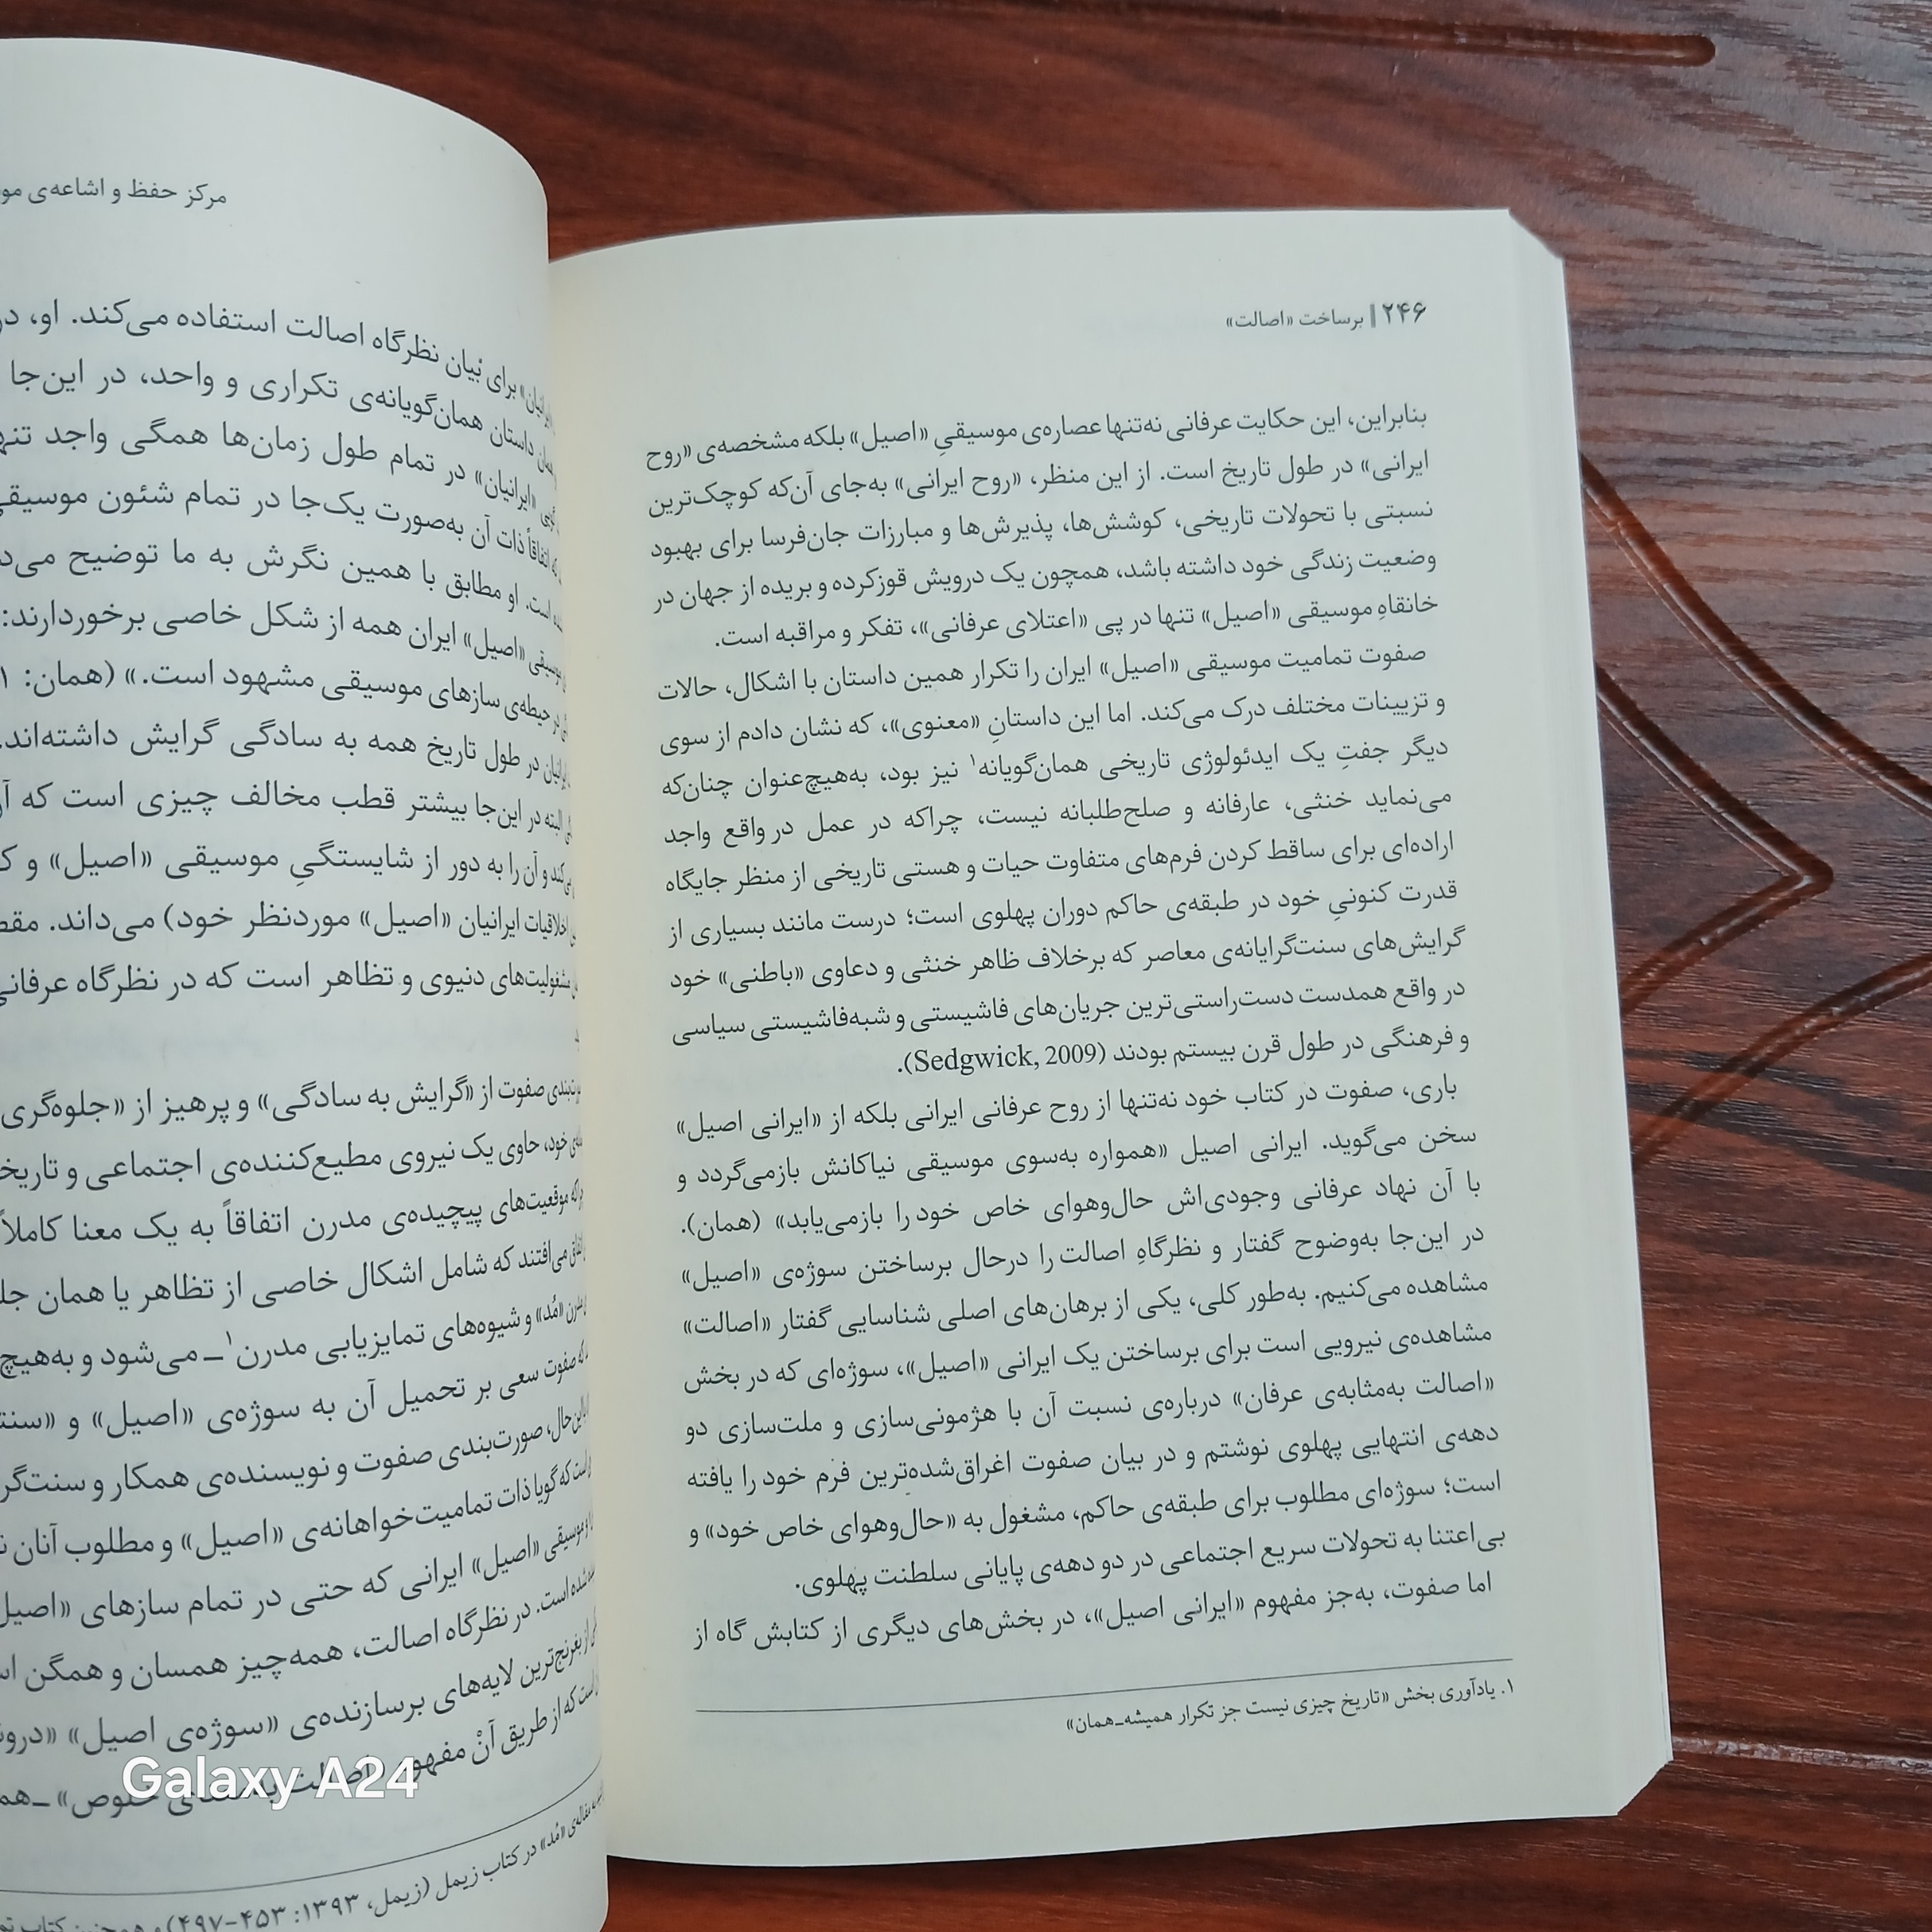 ۲۴۶ || برساخت «اصالت»
بنابراین، این حکایت عرفانی نه‌تنها عصاره‌ی موسیقیِ «اصیل» بلکه مشخصه‌ی «روح
ایرانی» در طول تاریخ است. از این منظر، «روح ایرانی» به‌جای آن‌که کوچک‌ترین
نسبتی با تحولات تاریخی، کوشش‌ها، پذیرش‌ها و مبارزات جان‌فرسا برای بهبود
وضعیت زندگی خود داشته باشد، همچون یک درویش قوزکرده و بریده از جهان در
خانقاهِ موسیقی «اصیل» تنها در پی «اعتلای عرفانی»، تفکر و مراقبه است.
صفوت تمامیت موسیقی «اصیل» ایران را تکرار همین داستان با اشکال، حالات
و تزیینات مختلف درک می‌کند. اما این داستانِ «معنوی»، که نشان دادم از سوی
دیگر جفتِ یک ایدئولوژی تاریخی همان‌گویانه۱ نیز بود، به‌هیچ‌عنوان چنان‌که
می‌نماید خنثی، عارفانه و صلح‌طلبانه نیست، چراکه در عمل در واقع واجد
اراده‌ای برای ساقط کردن فرم‌های متفاوت حیات و هستی تاریخی از منظر جایگاه
قدرت کنونیِ خود در طبقه‌ی حاکم دوران پهلوی است؛ درست مانند بسیاری از
گرایش‌های سنت‌گرایانه‌ی معاصر که برخلاف ظاهر خنثی و دعاوی «باطنی» خود
در واقع همدست دست‌راستی‌ترین جریان‌های فاشیستی و شبه‌فاشیستی سیاسی
و فرهنگی در طول قرن بیستم بودند (Sedgwick, 2009).
باری، صفوت در کتاب خود نه‌تنها از روح عرفانی ایرانی بلکه از «ایرانی اصیل»
سخن می‌گوید. ایرانی اصیل «همواره به‌سوی موسیقی نیاکانش بازمی‌گردد و
با آن نهاد عرفانی وجودی‌اش حال‌وهوای خاص خود را بازمی‌یابد» (همان).
در این‌جا به‌وضوح گفتار و نظرگاهِ اصالت را درحال برساختن سوژه‌ی «اصیل»
مشاهده می‌کنیم. به‌طور کلی، یکی از برهان‌های اصلی شناسایی گفتار «اصالت»
مشاهده‌ی نیرویی است برای برساختن یک ایرانی «اصیل»، سوژه‌ای که در بخش
«اصالت به‌مثابه‌ی عرفان» درباره‌ی نسبت آن با هژمونی‌سازی و ملت‌سازی دو
دهه‌ی انتهایی پهلوی نوشتم و در بیان صفوت اغراق‌شده‌ترین فرم خود را یافته
است؛ سوژه‌ای مطلوب برای طبقه‌ی حاکم، مشغول به «حال‌وهوای خاص خود» و
بی‌اعتنا به تحولات سریع اجتماعی در دو دهه‌ی پایانی سلطنت پهلوی.
اما صفوت، به‌جز مفهوم «ایرانی اصیل»، در بخش‌های دیگری از کتابش گاه از
۱. یادآوری بخش «تاریخ چیزی نیست جز تکرار همیشه‌ـ‌همان»
مرکز حفظ و اشاعه‌ی
برای بیان نظرگاه اصالت استفاده می‌کند. او،
داستان همان‌گویانه‌ی تکراری و واحد، در این‌جا
«ایرانیان» در تمام طول زمان‌ها همگی واجد
اتفاقاً ذات آن به‌صورت یک‌جا در تمام شئون
است. او مطابق با همین نگرش به ما توضیح
موسیقی «اصیل» ایران همه از شکل خاصی برخوردارند:
در حیطه‌ی سازهای موسیقی مشهود است.» (همان:
در طول تاریخ همه به سادگی گرایش داشته‌اند.
البته در این‌جا بیشتر قطب مخالف چیزی است که
و آن را به دور از شایستگیِ موسیقی «اصیل» و
اخلاقیات ایرانیان «اصیل» موردنظر خود) می‌داند.
مشغولیت‌های دنیوی و تظاهر است که در نظرگاه
صفوت از «گرایش به سادگی» و پرهیز از «جلوه‌گری
خود، حاوی یک نیروی مطیع‌کننده‌ی اجتماعی و
موقعیت‌های پیچیده‌ی مدرن اتفاقاً به یک معنا کاملاً
می‌افتند که شامل اشکال خاصی از تظاهر یا همان
مدرن «مُد» و شیوه‌های تمایزیابی مدرن۱ـ می‌شود و به‌هیچ
که صفوت سعی بر تحمیل آن به سوژه‌ی «اصیل» و
صورت‌بندی صفوت و نویسنده‌ی همکار و
است که گویا ذات تمامیت‌خواهانه‌ی «اصیل» و مطلوب آنان
و موسیقی «اصیل» ایرانی که حتی در تمام سازهای
شده است. در نظرگاه اصالت، همه‌چیز همسان و همگن
از بغرنج‌ترین لایه‌های برسازنده‌ی «سوژه‌ی اصیل»
است که از طریق آنْ مفهوم خلوص»
مقاله‌ی «مُد» در کتاب زیمل (زیمل، ۱۳۹۳: ۴۵۳-۴۹۷) و همچنین کتاب
Galaxy A24